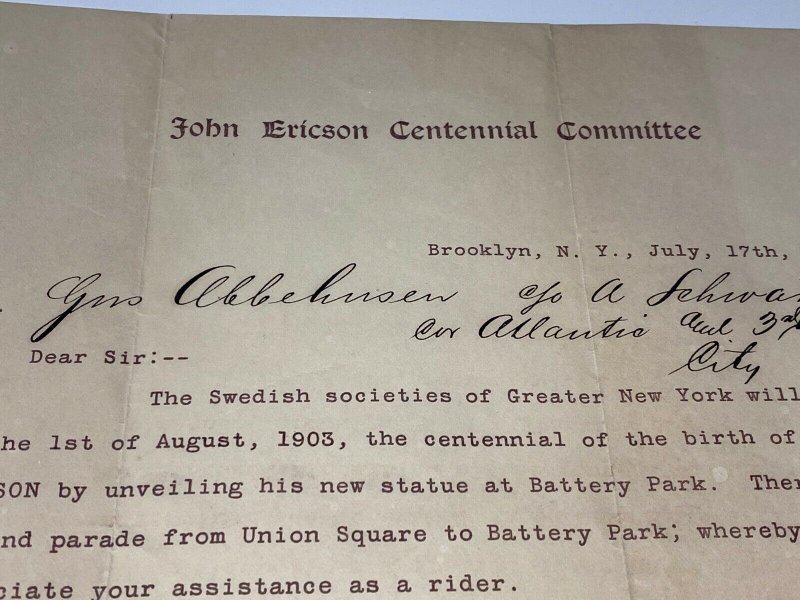 John Ericson Centennial Committee
Brooklyn, N. Y., July, 17th,
Gus Abbehusen c/o A Schwar
Cor Atlantic and 3rd
City
Dear Sir:--
The Swedish societies of Greater New York will
he 1st of August, 1903, the centennial of the birth of
SON by unveiling his new statue at Battery Park. Ther
nd parade from Union Square to Battery Park; whereby
ciate your assistance as a rider.